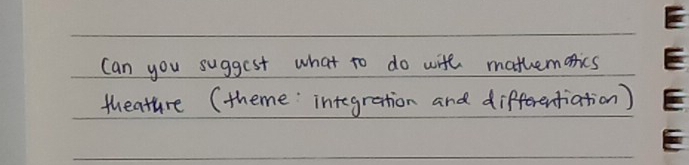 Can you suggest what to do with mathematics
theathre (theme: integration and differentiation)